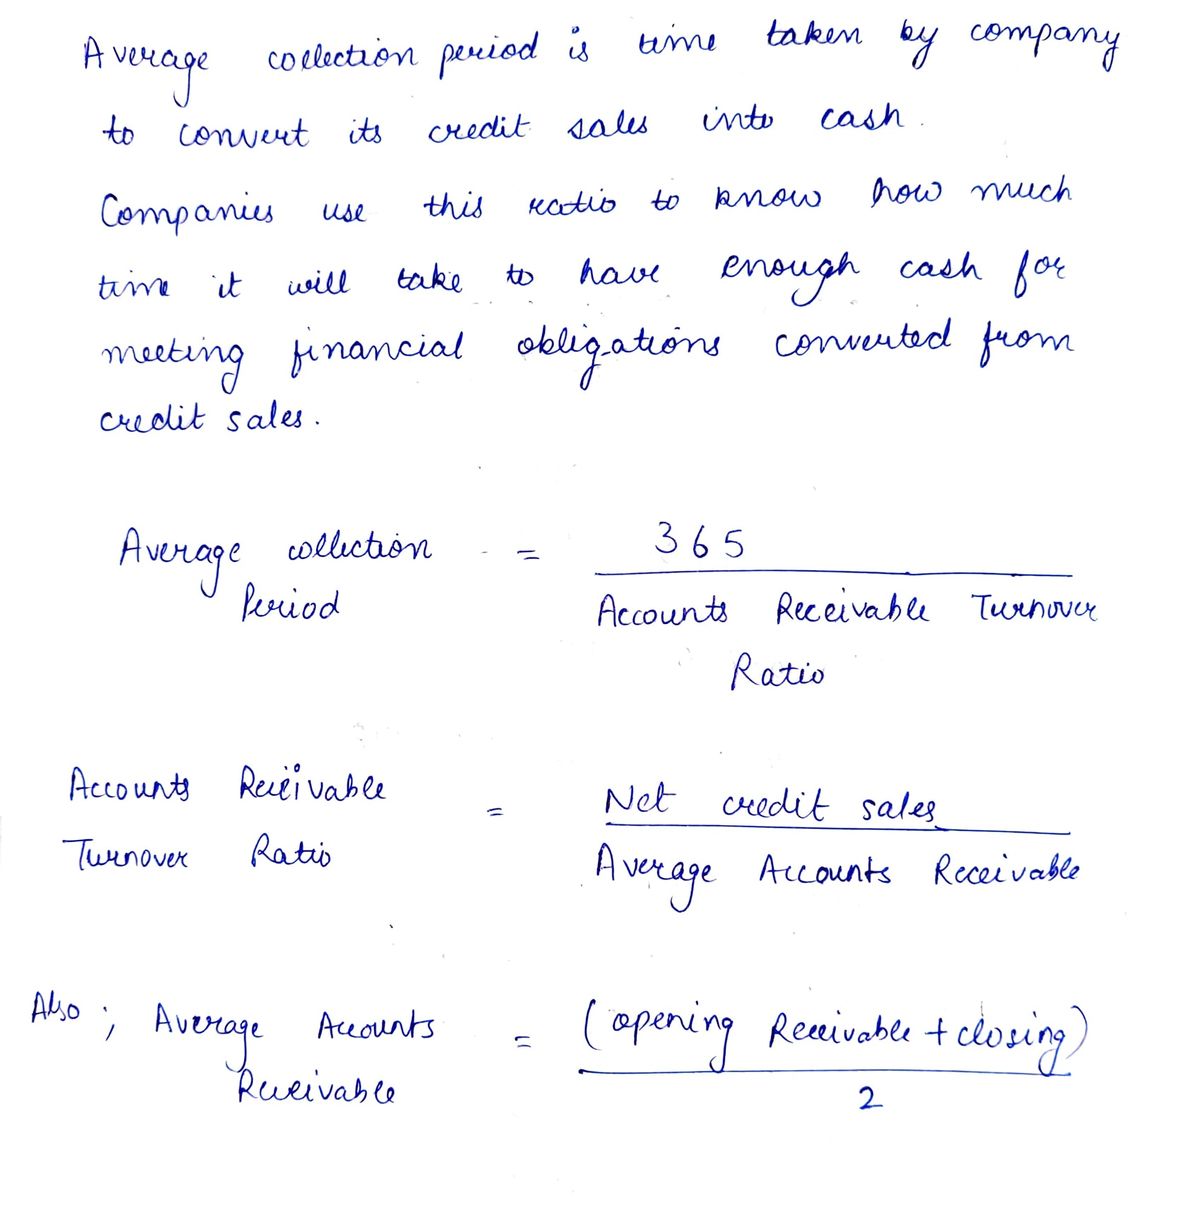 Average collection period is time taken by company
to convert its credit sales into cash.
Companies use this ratio to know how much
time it will take to have enough cash for
meeting financial obligations converted from
credit sales.
Average collection = 365
Period Accounts Receivable Turnover
Ratio
Accounts Receivable = Net credit sales
Turnover Ratio Average Accounts Receivable
Also; Average Accounts = (opening Receivable + closing)
Receivable 2